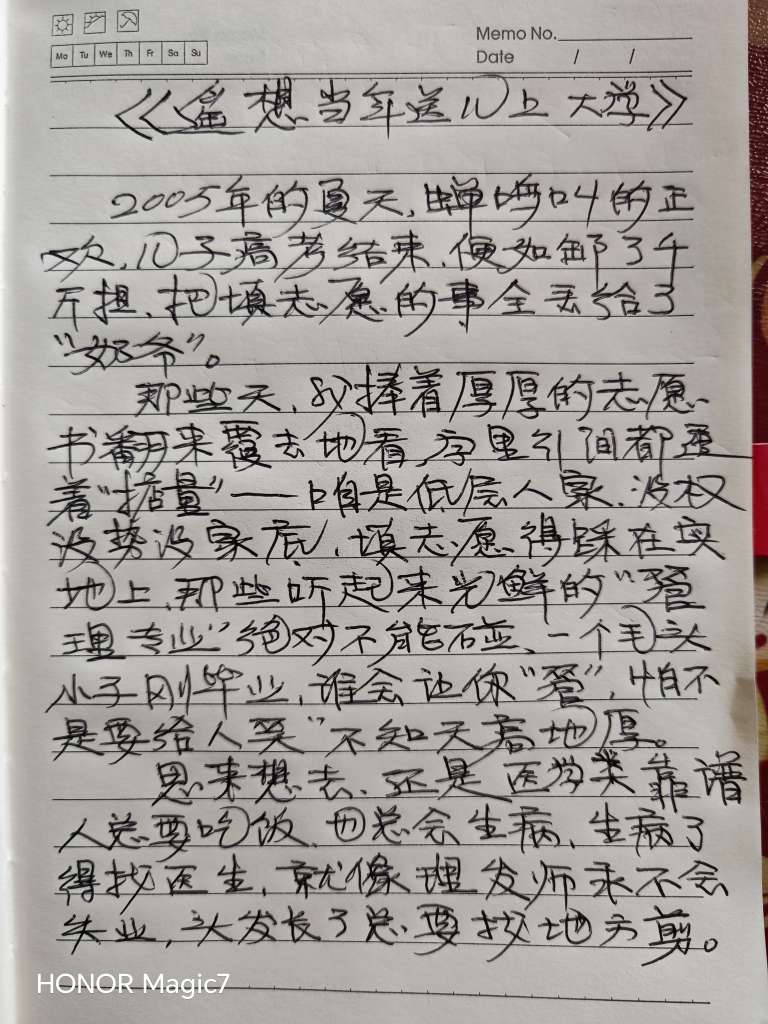 Memo No.
Mo Tu We Th Fr Sa Su
Date / /
《遥想当年送儿上大学》
2005年的夏天，蝉鸣叫的正
欢，儿子高考结束，便如卸了千
斤担，把填志愿的事全丢给了
“奶爷”。
那些天，我捧着厚厚的志愿
书翻来覆去地看，字里引间都透
着“掂量”——咱是低层人家，没权
没势没家底，填志愿得踩在实
地上，那些听起来光鲜的“管
理专业”绝对不能碰，一个毛头
小子刚毕业，谁会让你“管”，怕不
是要给人笑“不知天高地厚。
思来想去，还是医学类靠谱
人总要吃饭，也总会生病，生病了
得找医生，就像理发师永不会
失业，头发长了总要找地方剪。
HONOR Magic7